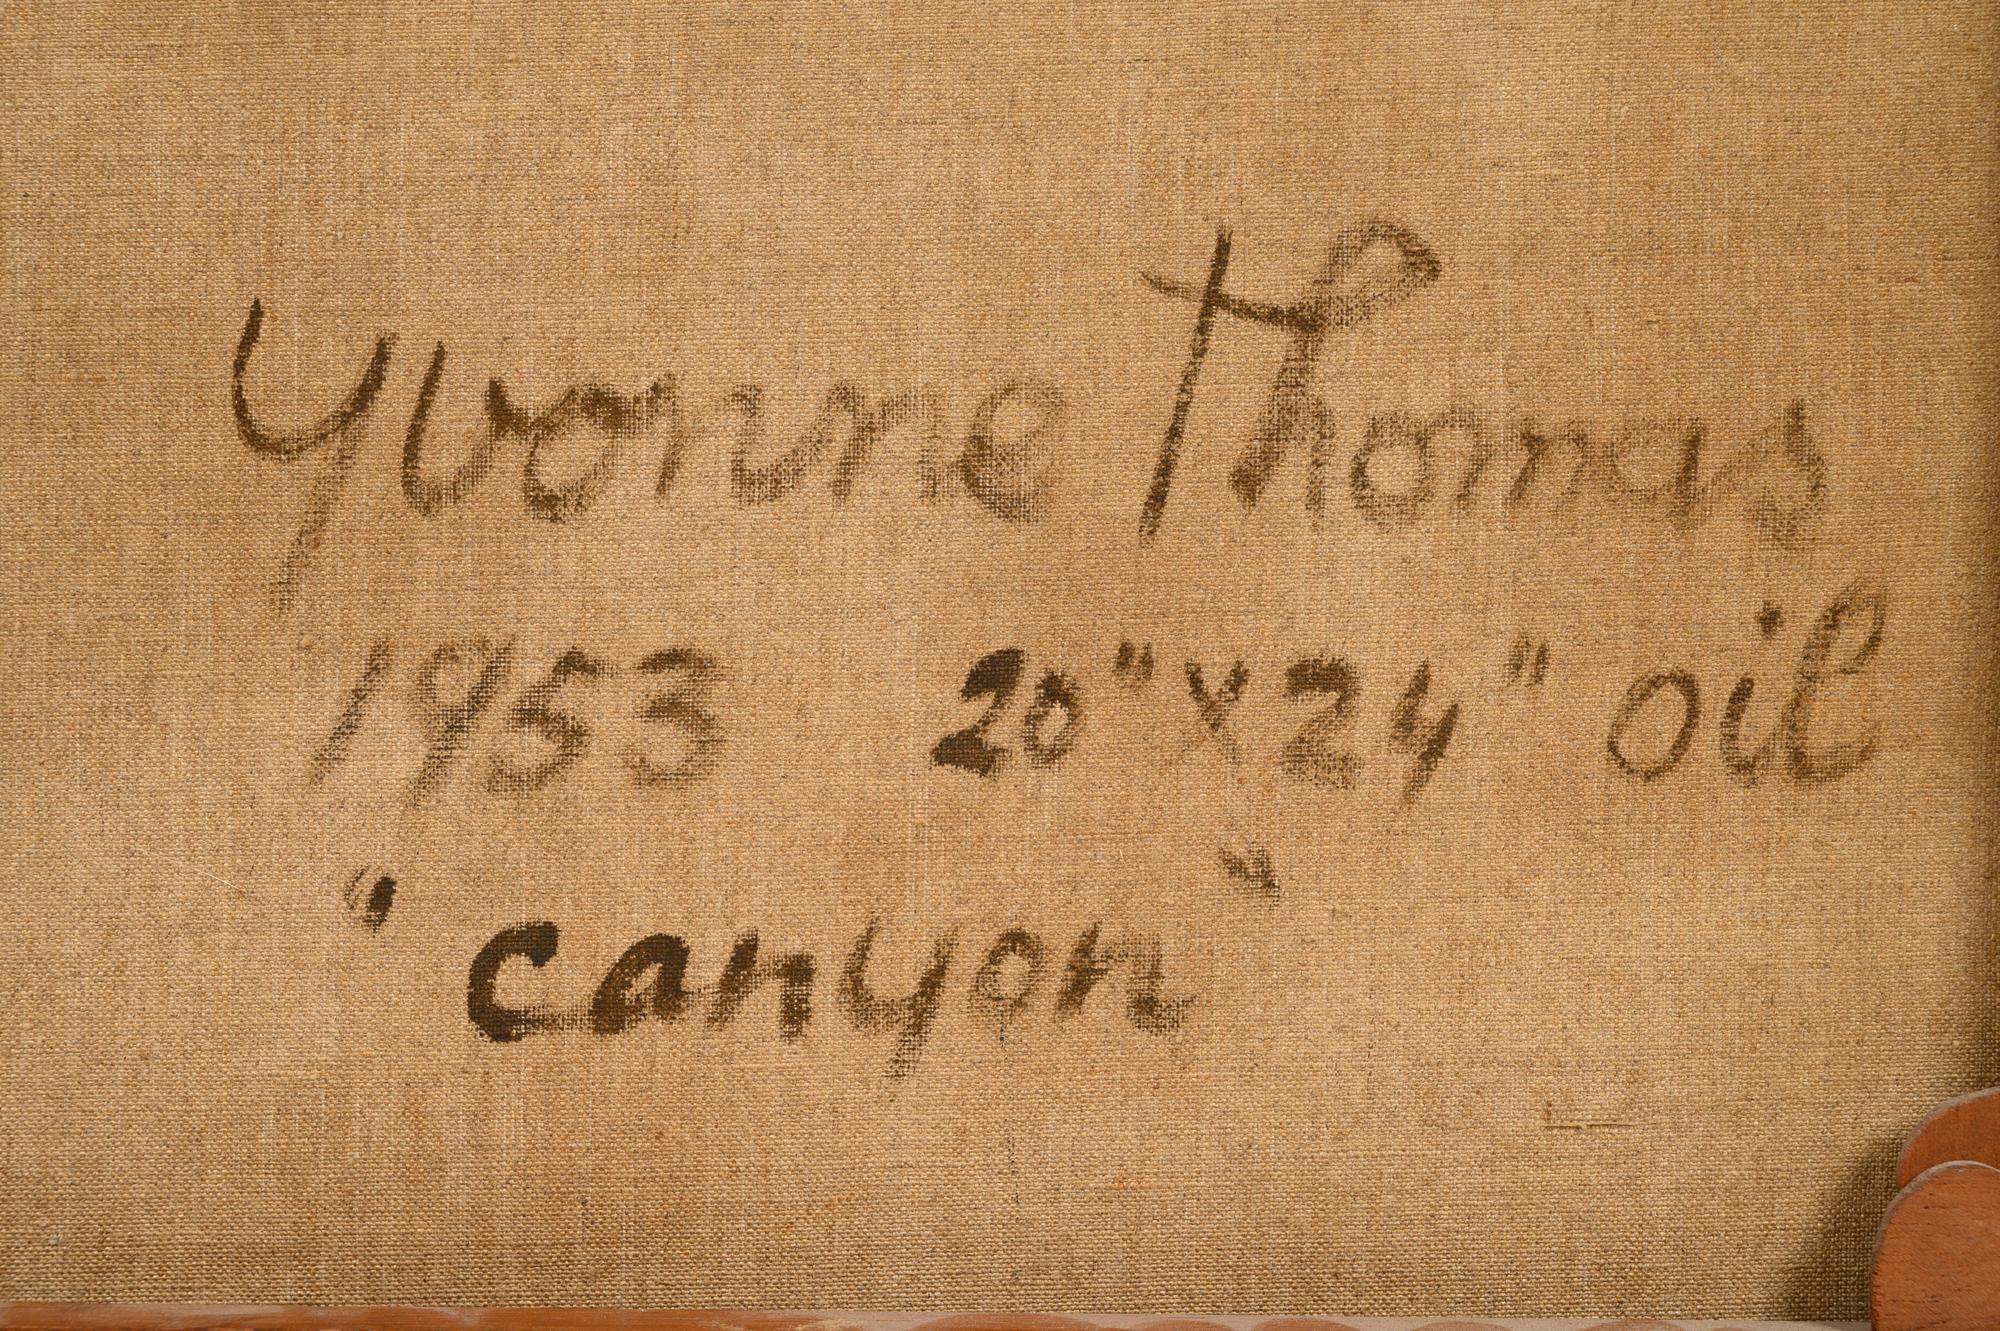 Yvonne Thomas
1953 20" x 24" oil
"canyon"